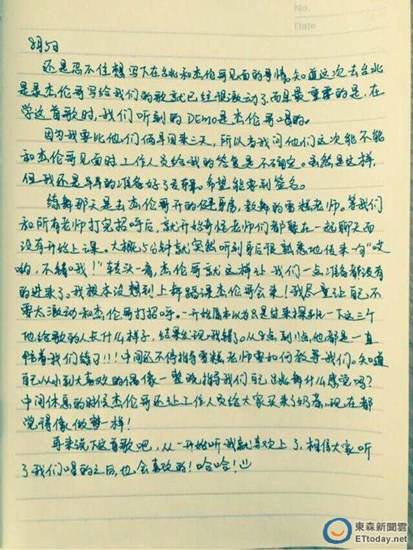 No.
Date
8月5日
还是忍不住想写下在台北和杰伦哥见面的事情。知道这次去台北
是录杰伦哥写给我们的歌就已经很激动了而且最重要的是，在
学这首歌时，我们听到的DEMO是杰伦哥唱的。
因为我要比他们俩早回来三天，所以当我问他们这次能不能
和杰伦哥见面时工作人员给我的答复是不确定。虽然是这样，
但我还是早早的准备好了专辑。希望能要到签名。
练舞那天是去杰伦哥开的练舞房，教舞的雪糕老师。等我们
和所有老师打完招呼后，就开始奇怪老师们都聚在一起聊天而
没有开始上课。大概5分钟就突然听到背后很熟悉地传来一句“哎
哟，不错哦！”转头一看，杰伦哥就这样让我们一点准备都没有
的进来了。我根本没想到上舞蹈课杰伦哥会来！我尽量让自己不
要太激动和杰伦哥打招呼。一开始原本以为只是过来探班看一下这三个
他给歌的人长什么样子，结果发现，我错了。从9点到11点，他都是一直
陪着我们练习!!!中间还不停指导雪糕老师要如何教导我们。知道
自己从小到大喜欢的偶像一整晚指导我们自己跳舞什么感觉吗？
中间休息的时候杰伦哥还让工作人员给大家买来了奶茶。现在都
觉得像做梦一样！
再来说下这首歌吧，从一开始听我就喜欢上了，相信大家听
了我们唱的之后，也会喜欢的！哈哈！
東森新聞雲
ETtoday.net